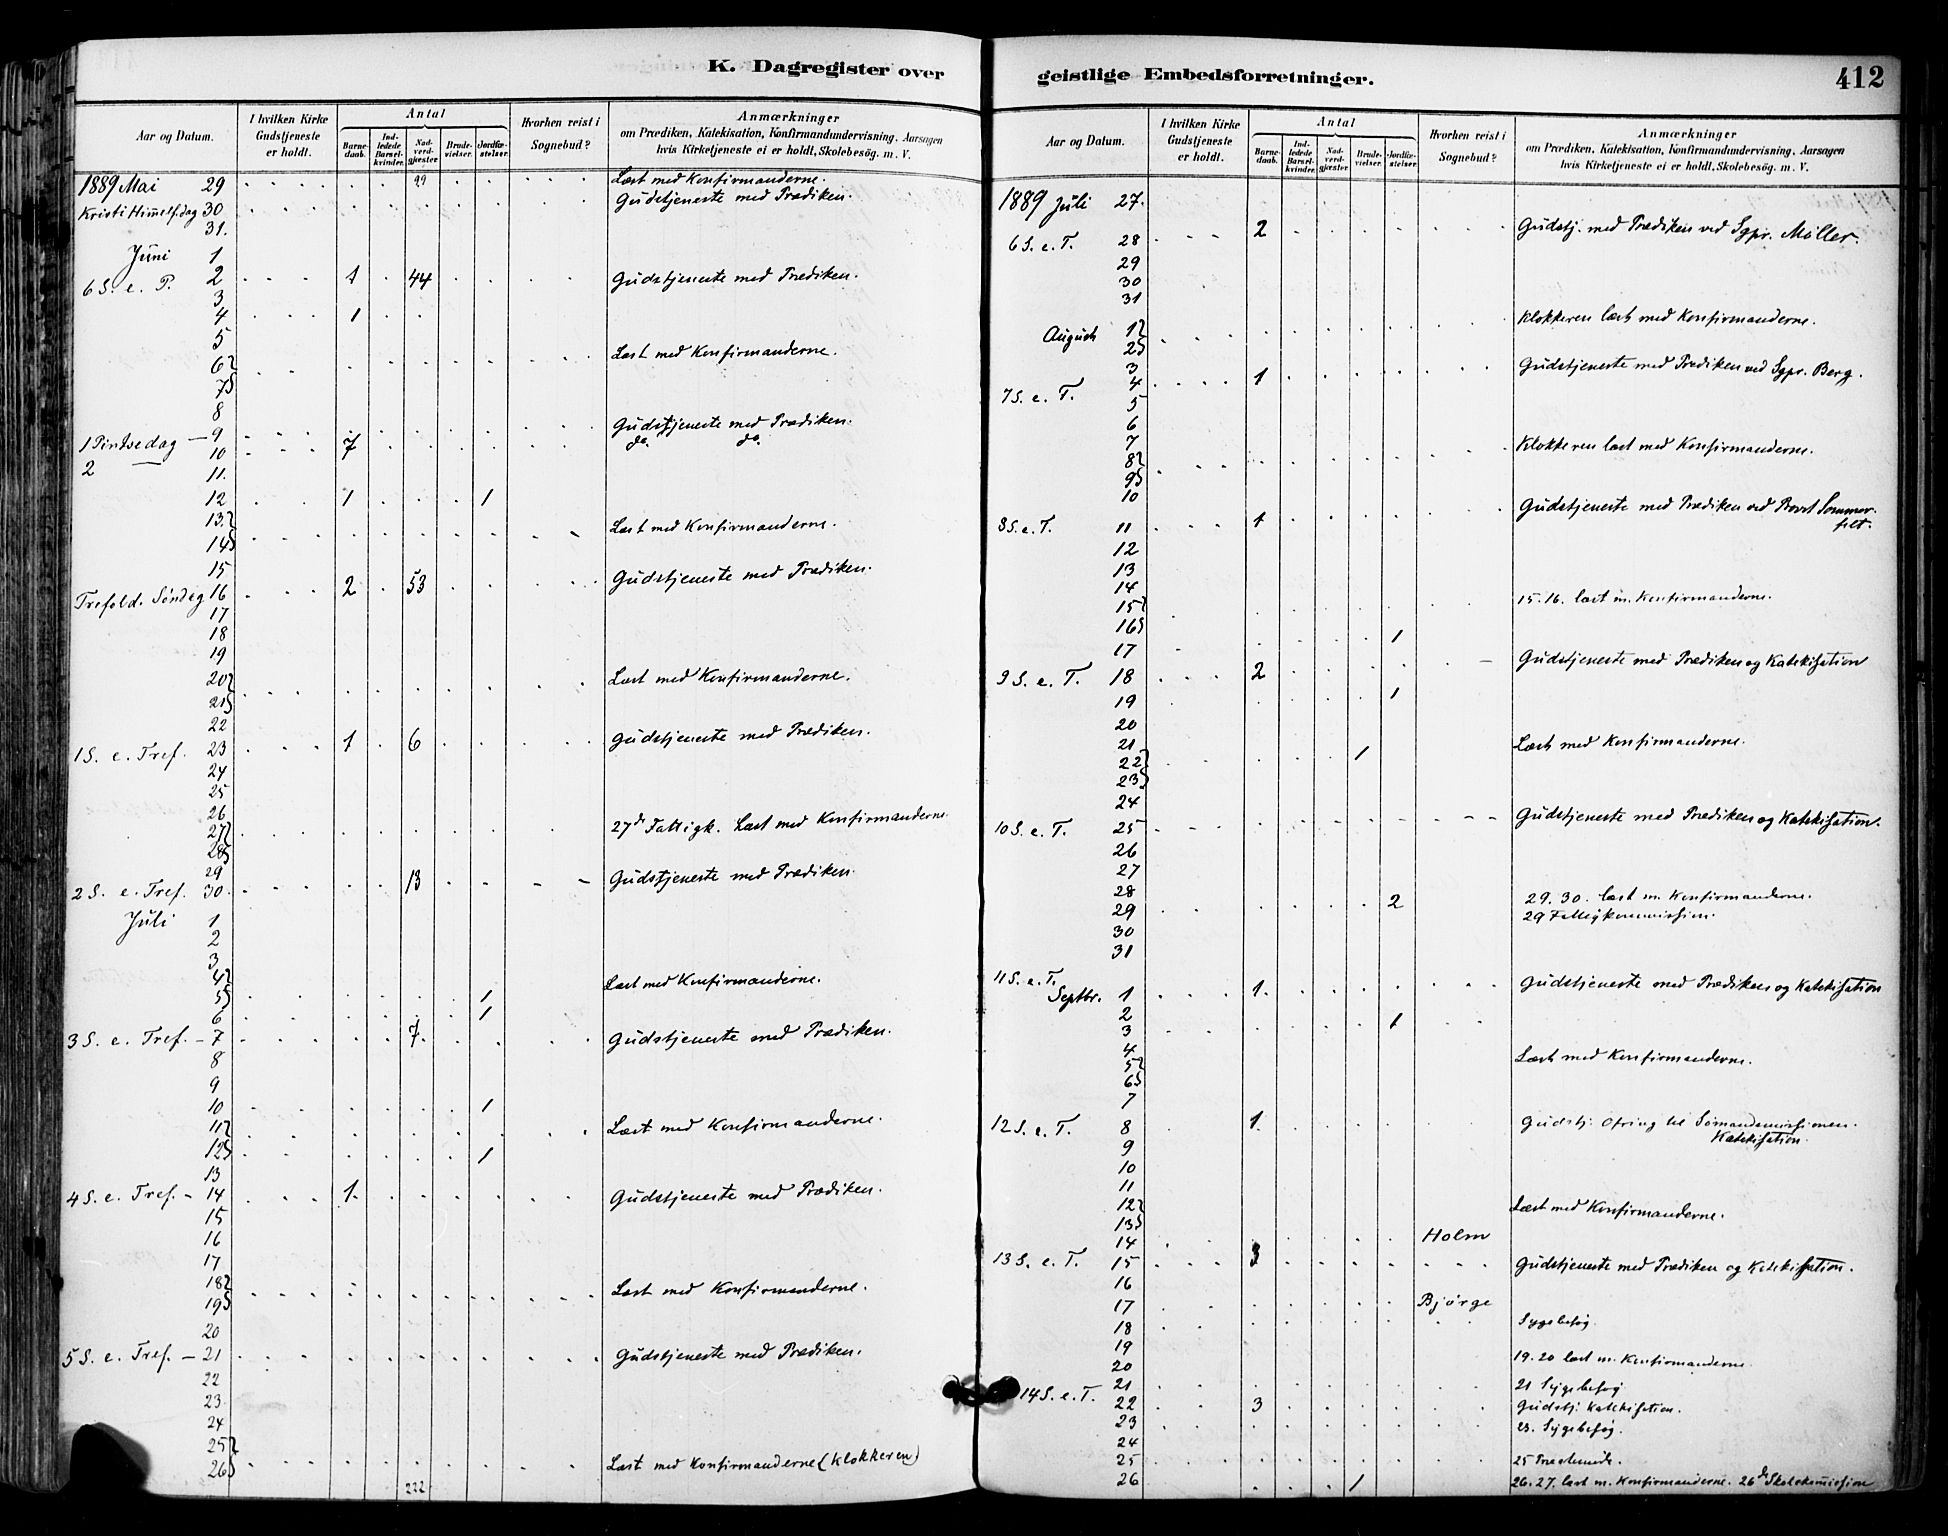 K. Dagregister over
Aar og Datum.
I hvilken Kirke Gudstjeneste er holdt.
Antal
Barne-daab.
Ind-ledede Barsel-kvinder.
Nad-verd-gjester
Brude-vielser.
Jordfæ-stelser.
Hvorhen reist i Sognebud?
Anmærkninger
om Prædiken, Katekisation, Konfirmandundervisning, Aarsagen
hvis Kirketjeneste ei er holdt, Skolebesøg. m. V.
1889 Mai 29 29 Læst med Konfirmanderne.
Kristi Himmelf.dag 30 Gudstjeneste med Prædiken.
31.
Juni 1
6 S. e. P. 2 1 44 Gudstjeneste med Prædiken.
3
4 1
5
6 Læst med Konfirmanderne.
7
8
1 Pintsedag — 9 Gudstjeneste med Prædiken.
2 — 10 7 do. do.
11.
12 1 1
13. Læst med Konfirmanderne.
14
15
Trefold. Søndag 16 2 53 Gudstjeneste med Prædiken.
17
18
19
20 Læst med Konfirmanderne.
21
22
1 S. e. Tref. 23 1 6 Gudstjeneste med Prædiken.
24
25
26
27 27d Fattigk. Læst med Konfirmanderne
28
29
2 S. e. Tref. 30. 13 Gudstjeneste med Prædiken.
Juli 1
2
3
4 Læst med Konfirmanderne.
5 1
6 1
3 S. e. Tref. – 7 7. Gudstjeneste med Prædiken.
8
9
10 1
11 Læst med Konfirmanderne.
12 1
13
4 S. e. Tref. – 14 1. Gudstjeneste med Prædiken.
15
16
17
18 Læst med Konfirmanderne.
19
20
5 S. e. Tref. – 21 Gudstjeneste med Prædiken.
22
23
24
25 Læst med Konfirmanderne (Klokkeren)
26
222
geistlige Embedsforretninger.
412
Aar og Datum.
I hvilken Kirke Gudstjeneste er holdt.
Antal
Barne-daab.
Ind-ledede Barsel-kvinder.
Nad-verd-gjester.
Brude-vielser.
Jordfæ-stelser.
Hvorhen reist i Sognebud?
Anmærkninger
om Prædiken, Katekisation, Konfirmandundervisning, Aarsagen
hvis Kirketjeneste ei er holdt, Skolebesøg. m. V.
1889 Juli 27.
6 S. e. T. 28 2 Gudstj. med Prædiken ved Sgpr. Møller.
29
30
31
August 1 Klokkeren læst med Konfirmanderne.
2
3
7 S. e. T. 4 1 Gudstjeneste med Prædiken ved Sgpr. Berg.
5
6
7
8 Klokkeren læst med Konfirmanderne.
9
10
8 S. e. T. 11 1 Gudstjeneste med Prædiken ved Provst Sommer-
felt.
12
13
14
15 15. 16. læst m. Konfirmanderne.
16 1
17
9 S. e. T. 18 2 Gudstjeneste med Prædiken og Katekisation
19 1
20
21
22 1 Læst med Konfirmanderne.
23
24
10 S. e. T. 25 Gudstjeneste med Prædiken og Katekisation.
26
27
28
29 2 29. 30. læst m. Konfirmanderne.
29 Fattigkommission.
30
31
11 S. e. T.
Septbr. 1 1. Gudstjeneste med Prædiken og Katekisation
2
3 1
4
5 Læst med Konfirmanderne.
6
7
12 S. e. T. 8 1. Gudstj. Ofring til Sømandsmissionen.
Katekisation.
9
10
11
12 Læst med Konfirmanderne.
13
14 Holm
13 S. e. T. 15 3 Gudstjeneste med Prædiken og Katekisation.
16
17 Bjørge
18 Sygebesøg.
19
20 19. 20 læst m. Konfirmanderne.
21 21 Sygebesøg
14 S. e. T. 22 3 Gudstj. Katekisation.
23 23. Sygebesøg.
24
25 25 Præstemøde.
26 1 26. 27. læst m. Konfirmanderne. 26de Skolekommission